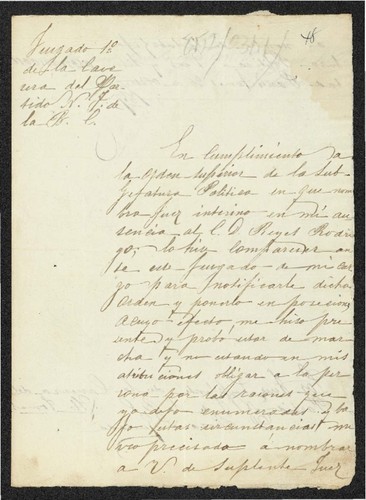 48
Juzgado 1º
de la Cave
sera del Par
tido N. J. de
la B. C.
En cumplimiento a
la orden superior de la Sub-
gefatura Politica en que nom
bra juez interino en mi au
sencia al C. D. Reyes Rodri
go, lo hize comparecer an
te este juzgado de mi car
go para notificarle dicha
orden y ponerlo en posecion
acuyo efecto me hiso pre
sente y probó estar de mar
cha y no estando en mis
atribuciones obligar a la per
sona por las rasones que
ya dejo enumeradas y ba
jo estas sircunstancias me
veo precisado á nombrar
a V. de Suplente Juez